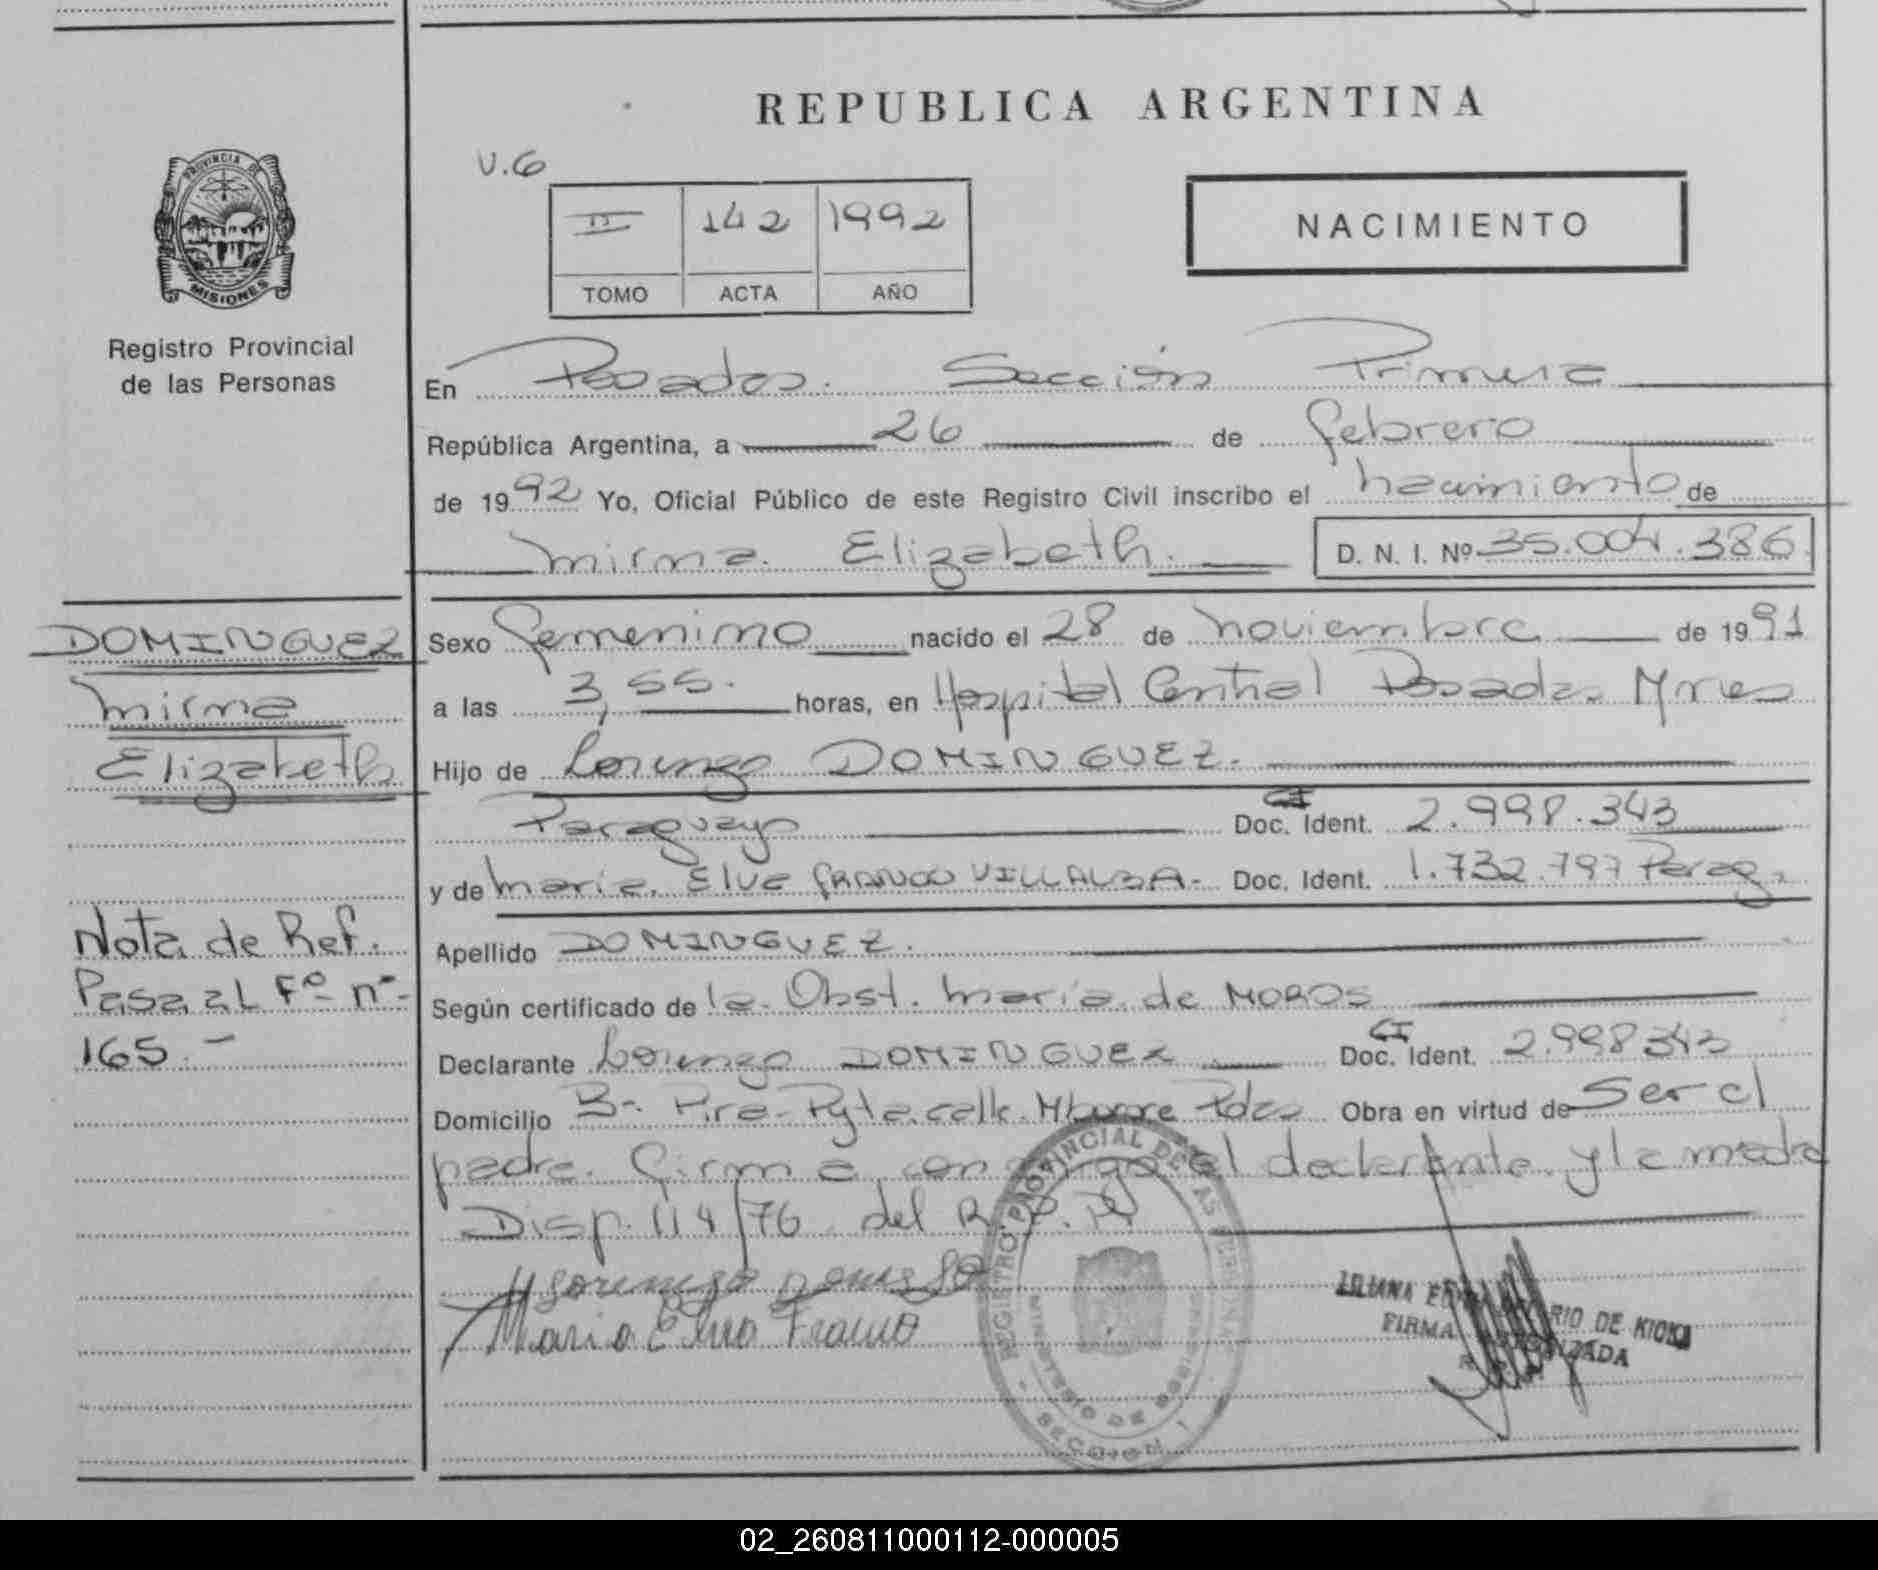 REPUBLICA ARGENTINA
PROVINCIA DE
MISIONES
Registro Provincial
de las Personas
V.6
II 142 1992
TOMO ACTA AÑO
NACIMIENTO
En Posadas. Sección Primera
República Argentina, a 26 de febrero
de 1992 Yo, Oficial Público de este Registro Civil inscribo el nacimiento de
Mirna Elizabeth. D. N. I. Nº 35.004.386.
DOMINGUEZ
Mirna
Elizabeth
Nota de Ref.
Pasa al Fº nº
165.-
Sexo femenino nacido el 28 de noviembre de 1991
a las 3,55. horas, en Hospital Central Posadas Mnes
Hijo de Lorenzo DOMINGUEZ.
Paraguayo CI Doc. Ident. 2.998.343
y de Maria Elva FRANCO VILLALBA- Doc. Ident. 1.732.797 Parag.
Apellido DOMINGUEZ.
Según certificado de la Obst. Maria de MOROS
Declarante Lorenzo DOMINGUEZ CI Doc. Ident. 2.998343
Domicilio B- Pira-Pyta calle Mburore Pdas Obra en virtud de Ser el
padre. firma conmigo el declarante y la madre
Disp. 114/76 del R.P.P.
Lorenzo
Maria Elva Franco
REGISTRO PROVINCIAL DE LAS PERSONAS
MINISTERIO DE GOBIERNO
SECCION 1
LILIANA RIO DE
FIRMA AUTORIZADA
02_260811000112-000005